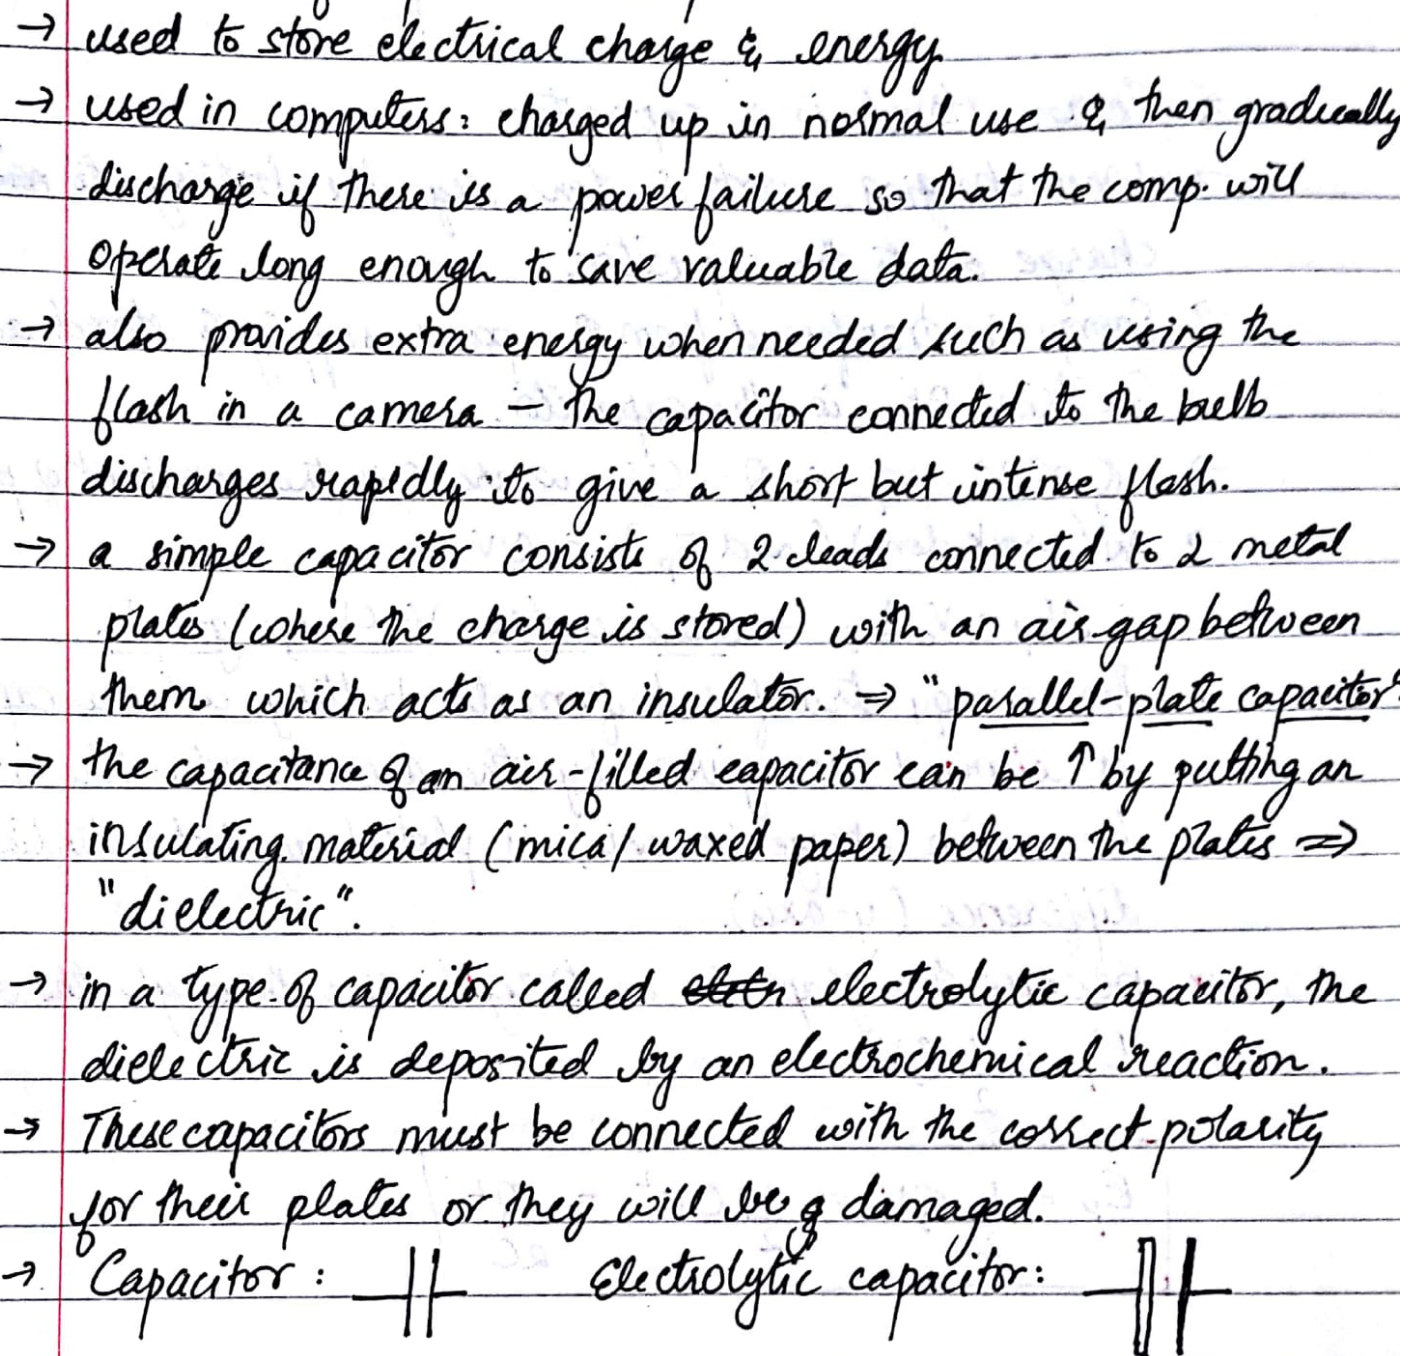 → used to store electrical charge & energy.
→ used in computers: charged up in normal use & then gradually
discharge if there is a power failure so that the comp. will
operate long enough to save valuable data.
→ also provides extra energy when needed such as using the
flash in a camera – the capacitor connected to the bulb
discharges rapidly to give a short but intense flash.
→ a simple capacitor consists of 2 leads connected to 2 metal
plates (where the charge is stored) with an air gap between
them which acts as an insulator. ⇒ "parallel-plate capacitor"
→ the capacitance of an air-filled capacitor can be ↑ by putting an
insulating material (mica/waxed paper) between the plates ⇒
"dielectric".
→ in a type of capacitor called electrolytic capacitor, the
dielectric is deposited by an electrochemical reaction.
→ These capacitors must be connected with the correct polarity
for their plates or they will be damaged.
→ Capacitor: Electrolytic capacitor: